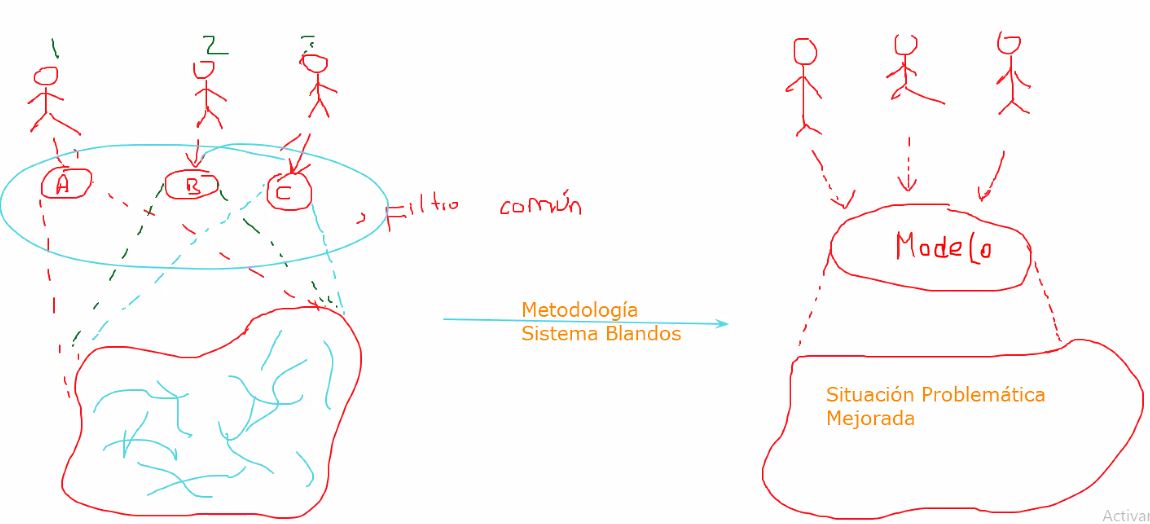 1 2
A B C
Filtro común
Metodología
Sistema Blandos
Modelo
Situación Problemática
Mejorada
Activar